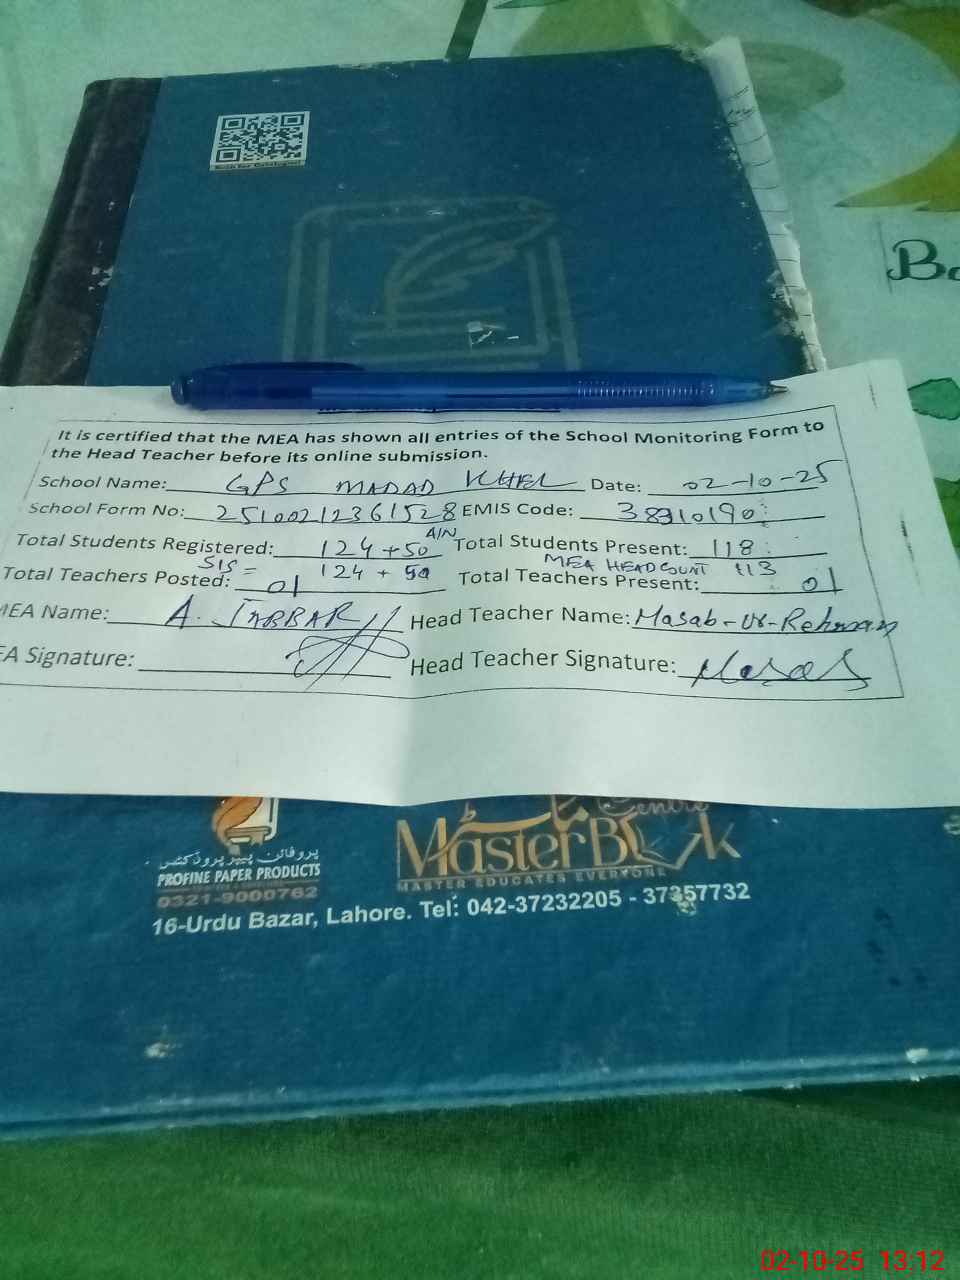 Ba
It is certified that the MEA has shown all entries of the School Monitoring Form to
the Head Teacher before its online submission.
School Name: GPS MADAD KHEL Date: 02-10-25
School Form No: 25100212361528 EMIS Code: 38310190
Total Students Registered: 124+50 A/N Total Students Present: 118
SIS = 124 + 50 MEA HEAD COUNT 113
Total Teachers Posted: 01 Total Teachers Present: 01
MEA Name: A. JABBAR Head Teacher Name: Masab-ur-Rehman
EA Signature: Head Teacher Signature: Masab
Centre
ماسٹر MasterBook
MASTER EDUCATES EVERYONE
پروفائن پیپر پروڈکٹس
PROFINE PAPER PRODUCTS
0321-9000762
16-Urdu Bazar, Lahore. Tel: 042-37232205 - 37357732
02-10-25 13:12